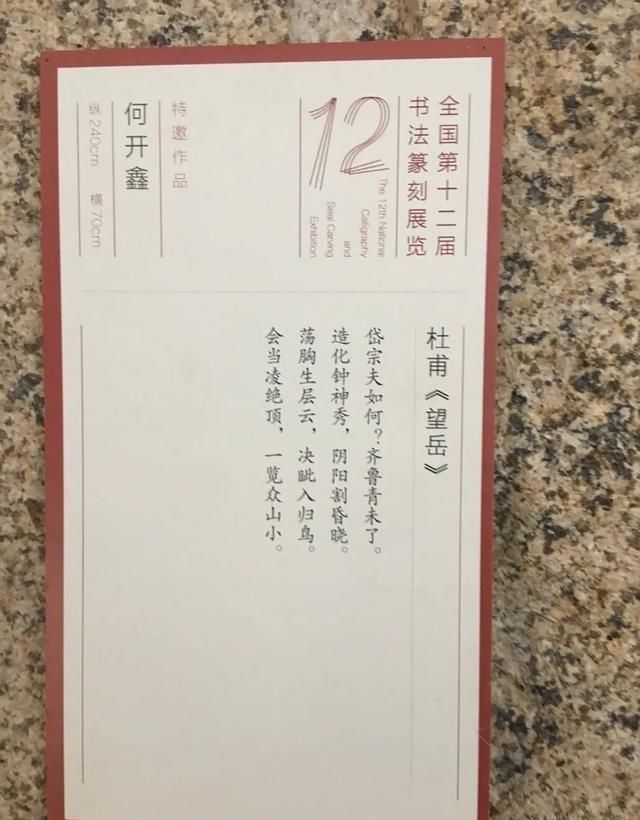 全国第十二届
书法篆刻展览
12
The 12th National
Calligraphy
and
Seal Carving
Exhibition
特邀作品
何开鑫
纵240cm 横70cm
杜甫《望岳》
岱宗夫如何？齐鲁青未了。
造化钟神秀，阴阳割昏晓。
荡胸生层云，决眦入归鸟。
会当凌绝顶，一览众山小。